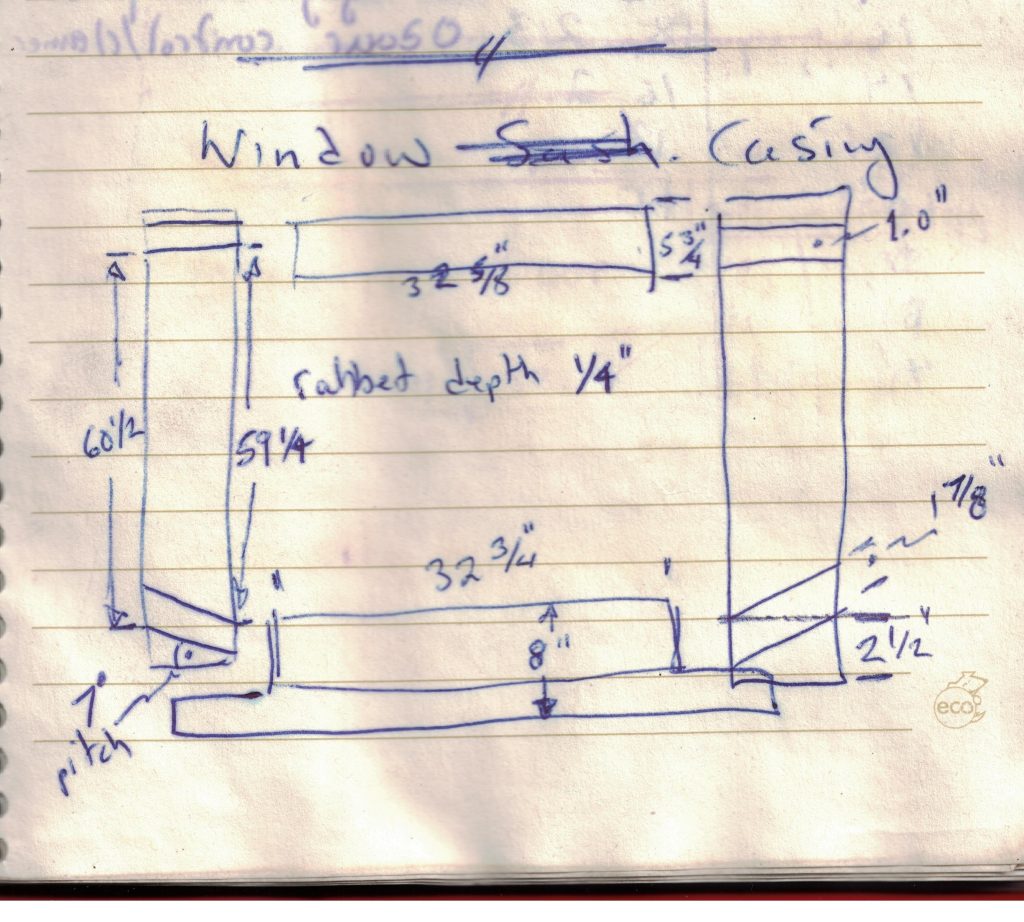 Window Casing
1.0"
5 3/4"
32 5/8"
rabbet depth 1/4"
60 1/2
59 1/4
1 7/8"
32 3/4"
8"
2 1/2"
7°
pitch
eco